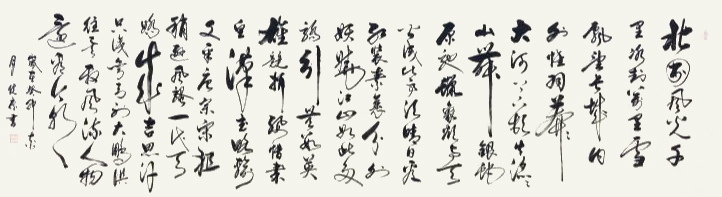 北国风光千
里冰封万里雪
飘望长城内
外惟余莽莽
大河上下顿失滔滔
山舞银蛇
原驰蜡象欲与天
公试比高须晴日看
红装素裹分外
妖娆江山如此多
娇引无数英
雄竞折腰惜秦
皇汉武略输
文采唐宗宋祖
稍逊风骚一代天
骄成吉思汗
只识弯弓射大雕俱
往矣数风流人物
还看今朝